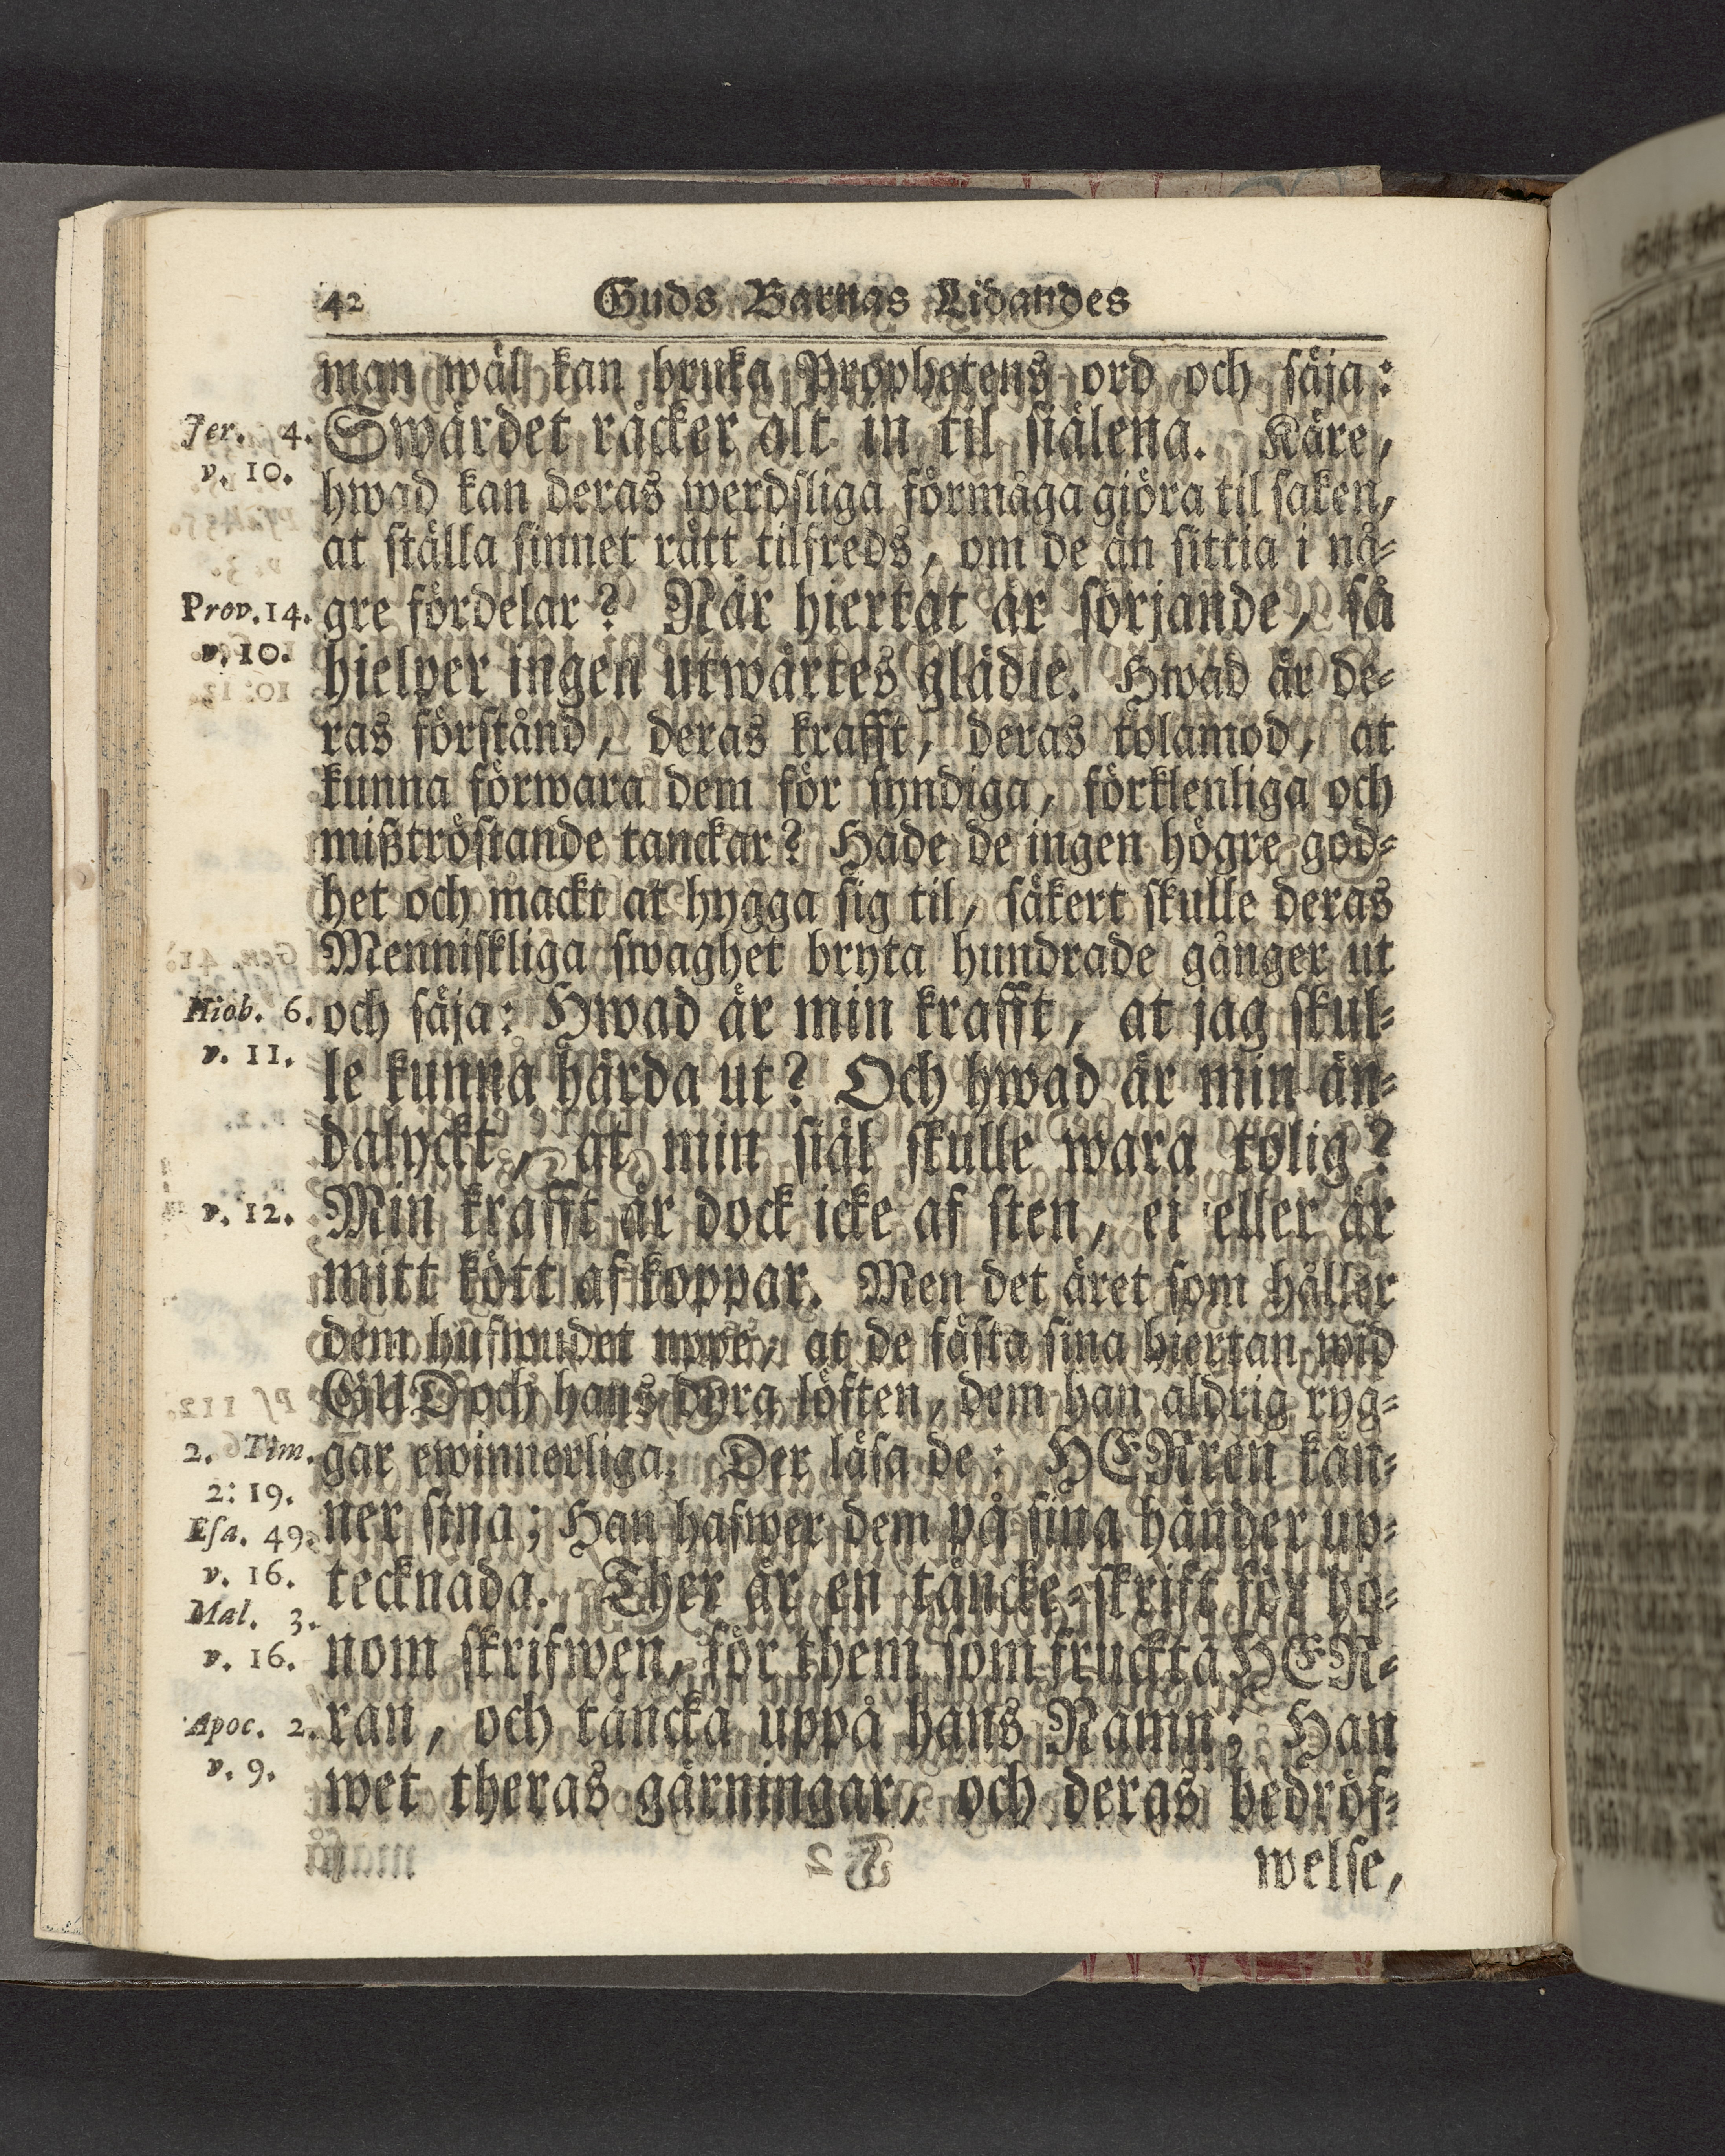 42 Guds Barnas Lidandes
man wäl kan bruka Prophetens ord och säja:
Jer. 4. Swärdet räcker alt in til siälena. Käre,
v. 10. hwad kan deras werdsliga förmåga giöra til saken,
at ställa sinnet rätt tilfreds, om de än sittia i nå-
Prov. 14. gre fördelar? När hiertat är sörjande, så
v. 10. hielper ingen utwärtes glädie. Hwad är de-
ras förstånd, deras krafft, deras tolamod, at
kunna förwara dem för syndiga, förklenliga och
mißtröstande tanckar? Hade de ingen högre god-
het och mackt at hygga sig til, säkert skulle deras
Menniskliga swaghet bryta hundrade gånger ut
Hiob. 6. och säja: Hwad är min krafft, at jag skul-
v. 11. le kunna härda ut? Och hwad är min än-
dalyckt, at min siäl skulle wara tolig?
v. 12. Min krafft är dock icke af sten, ei eller är
mitt kött af koppar. Men det äret som håller
dem hufwudet uppe, at de fästa sina hiertan wid
GUD och hans dyra löften, dem han aldrig ryg-
2. Tim. gar ewinnerliga. Der läsa de: HERren kän-
2: 19.
Esa. 49. ner sina; Han hafwer dem på sina händer up-
v. 16. tecknada. Ther är en täncke-skrift för ho-
Mal. 3.
v. 16. nom skrifwen, för them som fruckta HER-
Apoc. 2. ran, och täncka uppå hans Namn; Han
v. 9. wet theras gärningar, och deras bedröf-
welse,